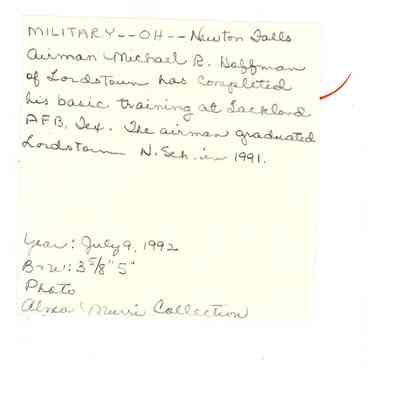 MILITARY--OH--Newton Falls
Airman Michael R. Hoffman
of Lordstown has completed
his basic training at Lackland
AFB, Tex. The airman graduated
Lordstown H. Sch. in 1991.
Year: July 9, 1992
B+W: 3 5/8" 5"
Photo
Alma Collection